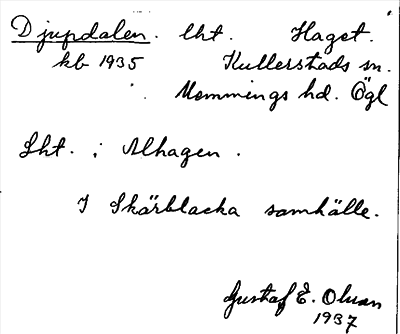 Djupdalen. lht. Haget.
kb 1935 Kullerstads sn.
Memmings hd. Ögl
Lht. i Alhagen.
I Skärblacka samhälle.
Gustaf E. Olsson
1937